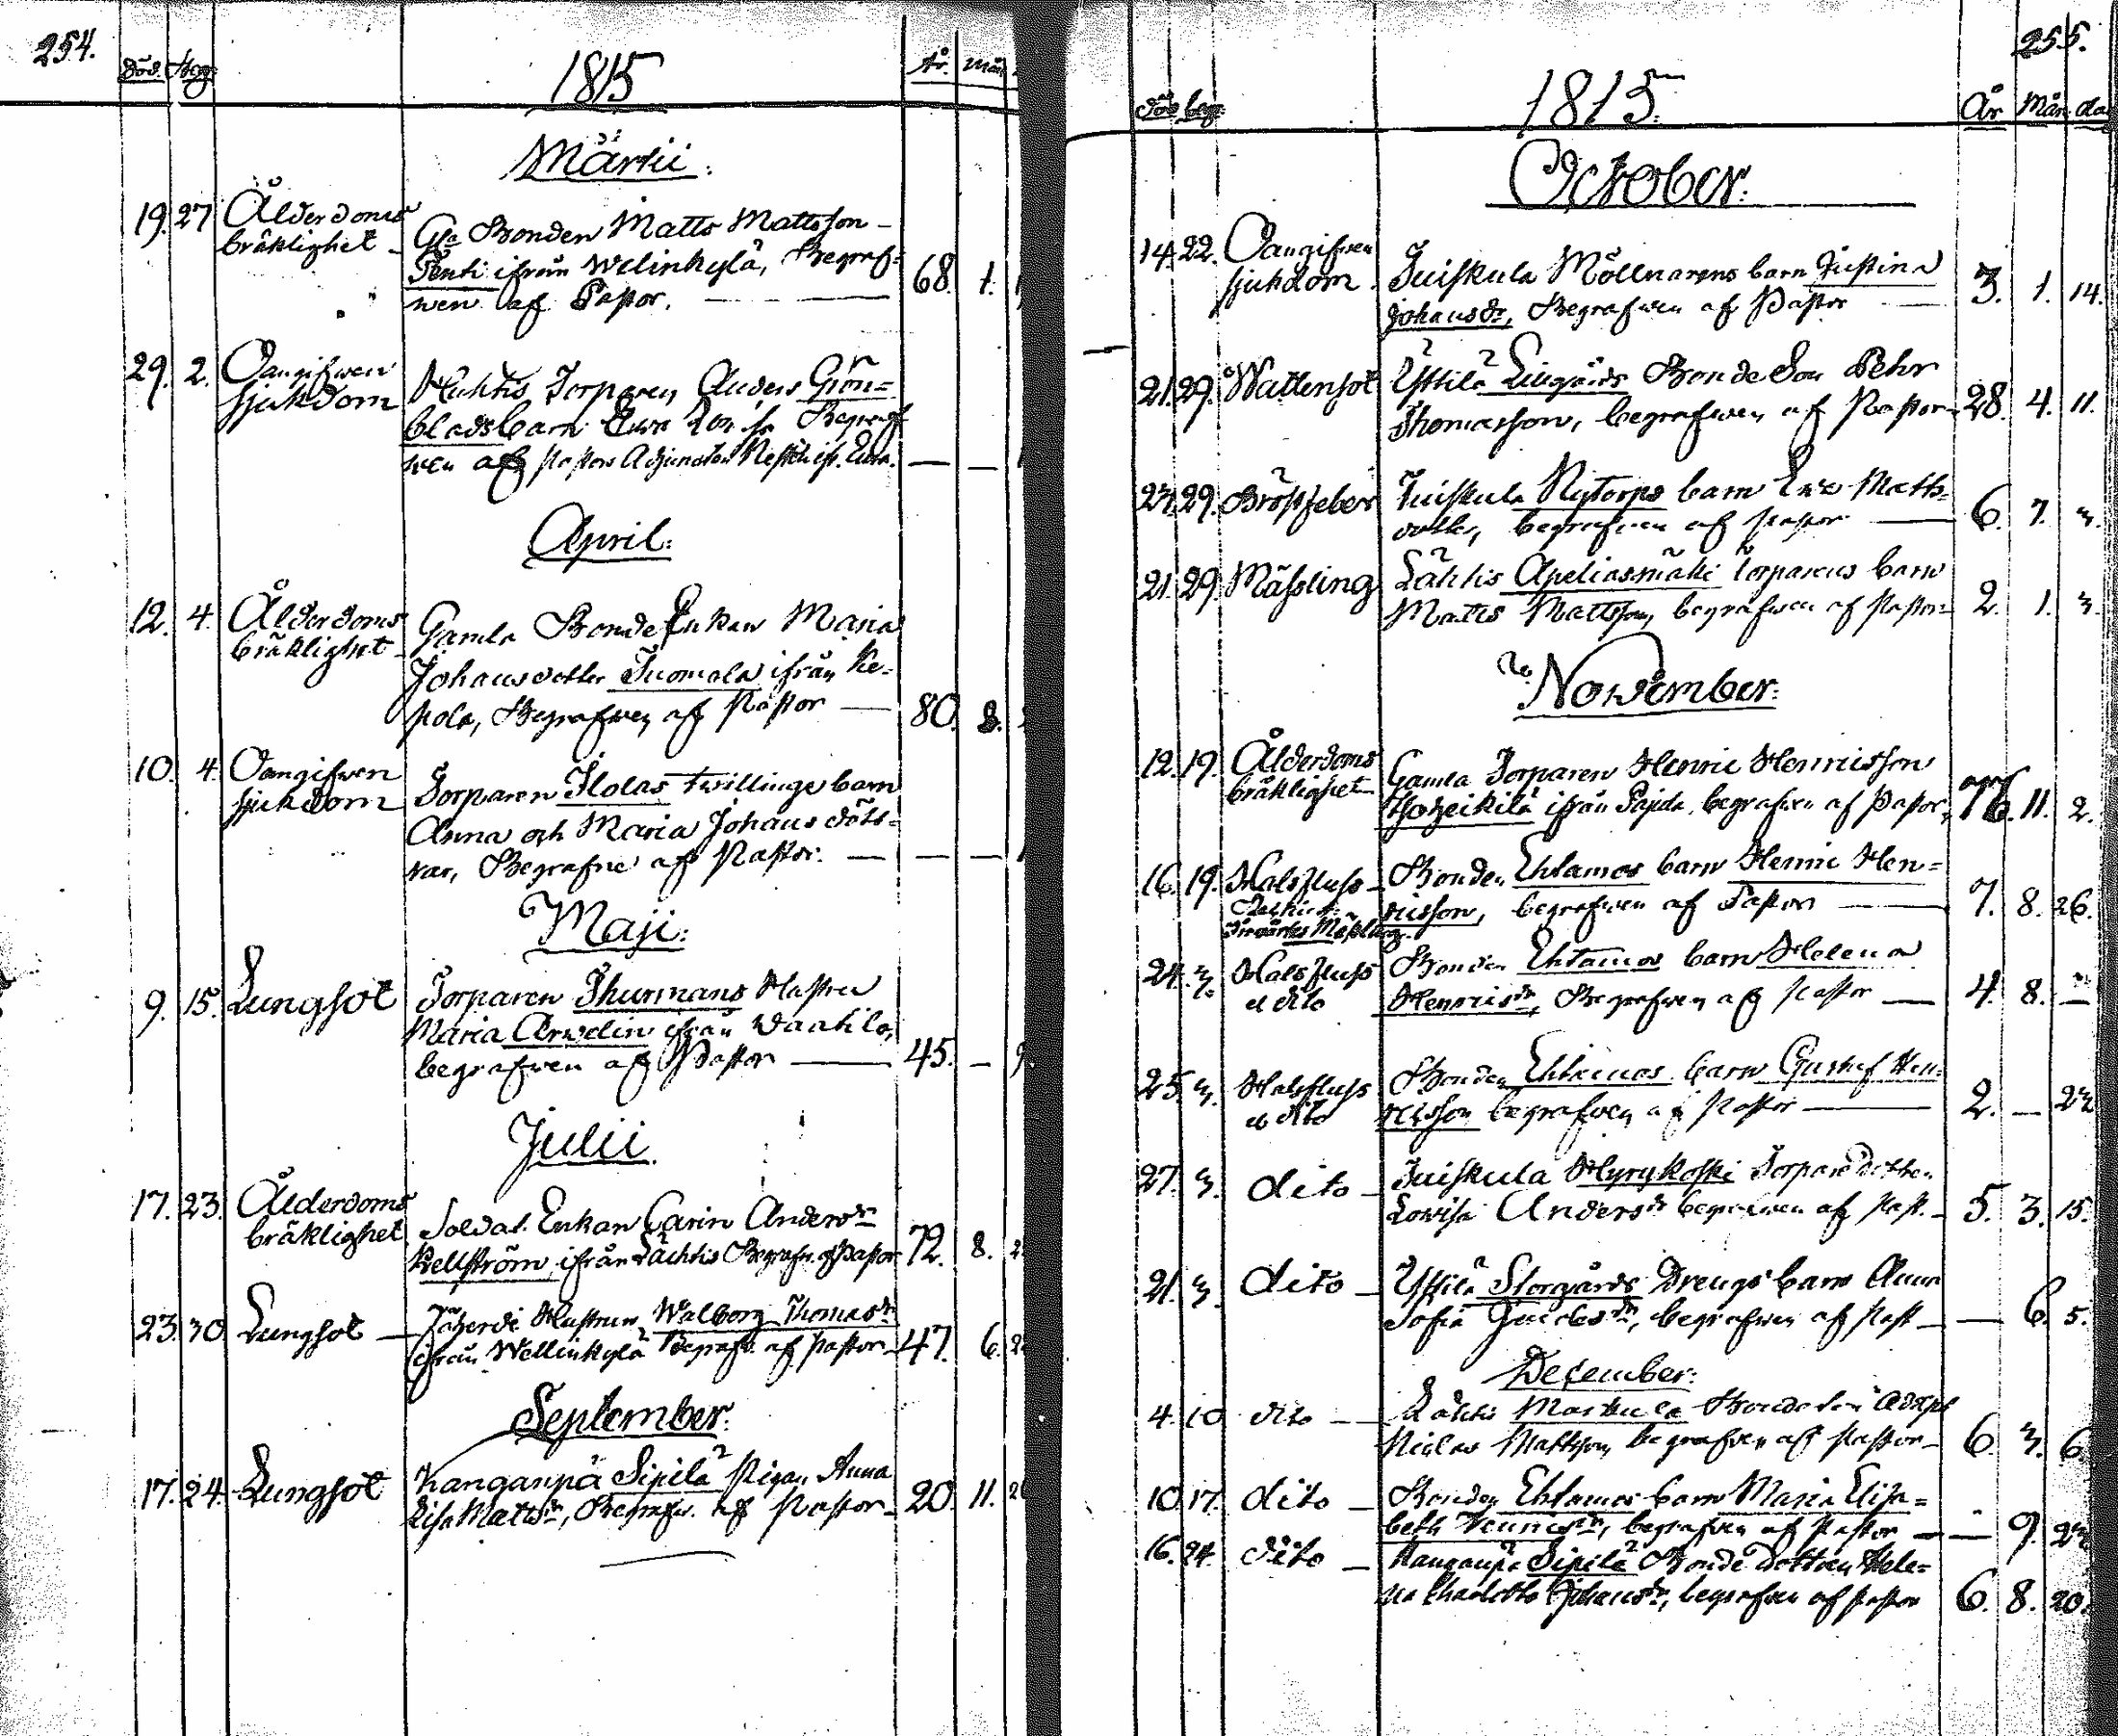 254.
Död. Begr. 1815 År. Mån
Martii:
19. 27 Ålderdoms
bräklighet - Gla Bonden Matts Mattsson -
Penti ifrån Welinkylä, Begraf=
wen af Pastor. 68. 1.
29. 2. Oangifwen
sjukdom Torparen Anders Grön=
blads barn Ewa Begraf
wen af Pastors Adjuncten
April:
12. 4. Ålderdoms
bräklighet Gamla Bonde Enkan Maria
Johansdotter Tuomola ifrån Ke=
pola, Begrafwen af Pastor 80. 8.
10. 4. Oangifwen
sjukdom Torparen Ilolas twillinge barn
Anna och Maria Johans dött=
rar, Begrafne af Pastor.
Maji:
9. 15. Lungsot Torparen Thurmans Hustru
Maria Arwelin ifrån
begrafwen af Pastor 45. -
Julii
17. 23. Ålderdoms
bräklighet Soldat. Enkan Carin Andersdr
Kellström ifrån Lächtis Begrafw. af Pastor 72. 8.
23. 30. Lungsot - Hustrun Walborg Thomasdr
ifrån Wellinkylä Begrafw. af Pastor - 47. 6.
September:
17. 24. Lungsot Kangaunpä Sipilä Pigan Anna
Lisa Mattsdr, Begrafw. af Pastor - 20. 11.
255.
Död begr. 1815. År Mån. da
October:
14. 22. Oangifwen
sjukdom. Juiskula Möllnarens barn Justina
Johansdr, Begrafwen af Pastor 3. 1. 14.
21. 29. Wattensot Yttilä Lillgårds Bonde Son Pehr
Thomasson, begrafwen af Pastor - 28. 4. 11.
23. 29. Bröstfeber Juiskula Nytorps barn Ewa Matts=
dotter, begrafwen af Pastor 6. 7. 3.
21. 29. Mässling Lähtis Apeliasmäki torparens barn
Matts Mattsson, begrafwen af Pastor - 2. 1. 3.
November:
12. 19. Ålderdoms
bräklighet Gamla Torparen Henric Henricsson
ifrån begrafwen af Pastor, 76. 11. 2.
16. 19. Halsfluss - Bonden Ehtamos barn Henric Hen=
ricsson, begrafwen af Pastor 7. 8. 26.
Mässling.
24. 3. Halsfluss
et dito Bonden Ehtamos barn Helena
Henricsdr, Begrafwen af Pastor 4. 8. -
25. 3. Halsfluss
et dito Bonden Ehtamos barn Gustaf Hen=
ricsson begrafwen af Pastor 2. - 23
27. 3. dito - Juiskula Myrykoski Torpare dotter
Lowisa Andersdr begrafwen af Past. - 5. 3. 15.
21. 3. dito - Yttilä Storgårds Drengs barn Anna
Sofia begrafwen af Past - 6. 5.
December:
4. 10 dito - Lähtis Bonde son Adolph
Niclas Mattsson begrafwen af Pastor - 6. 3. 6.
10. 17. dito - Bonden Ehtamos barn Maria Elisa=
beth Hennicsdr, begrafwen af Pastor - 9. 23
16. 24. dito - Kangaunpä Sipilä Bonde dottren Hele=
na Charlotta Johansdr, begrafwen af Pastor 6. 8. 20.